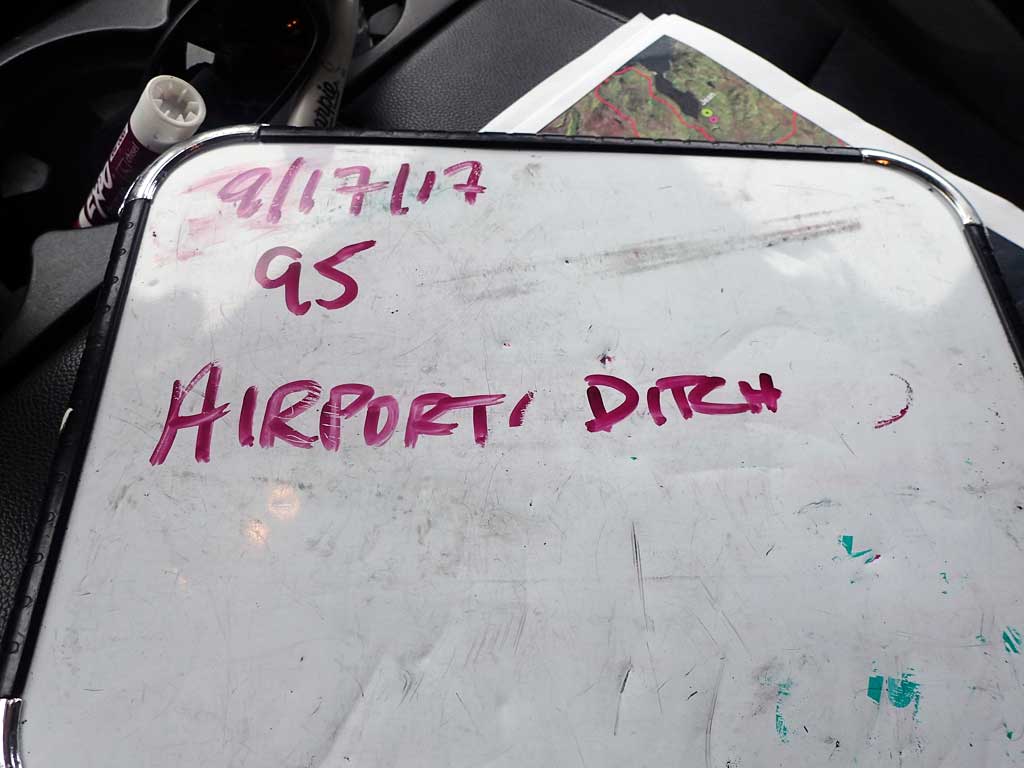 9/17/17
95
AIRPORT, DITCH
EXPO